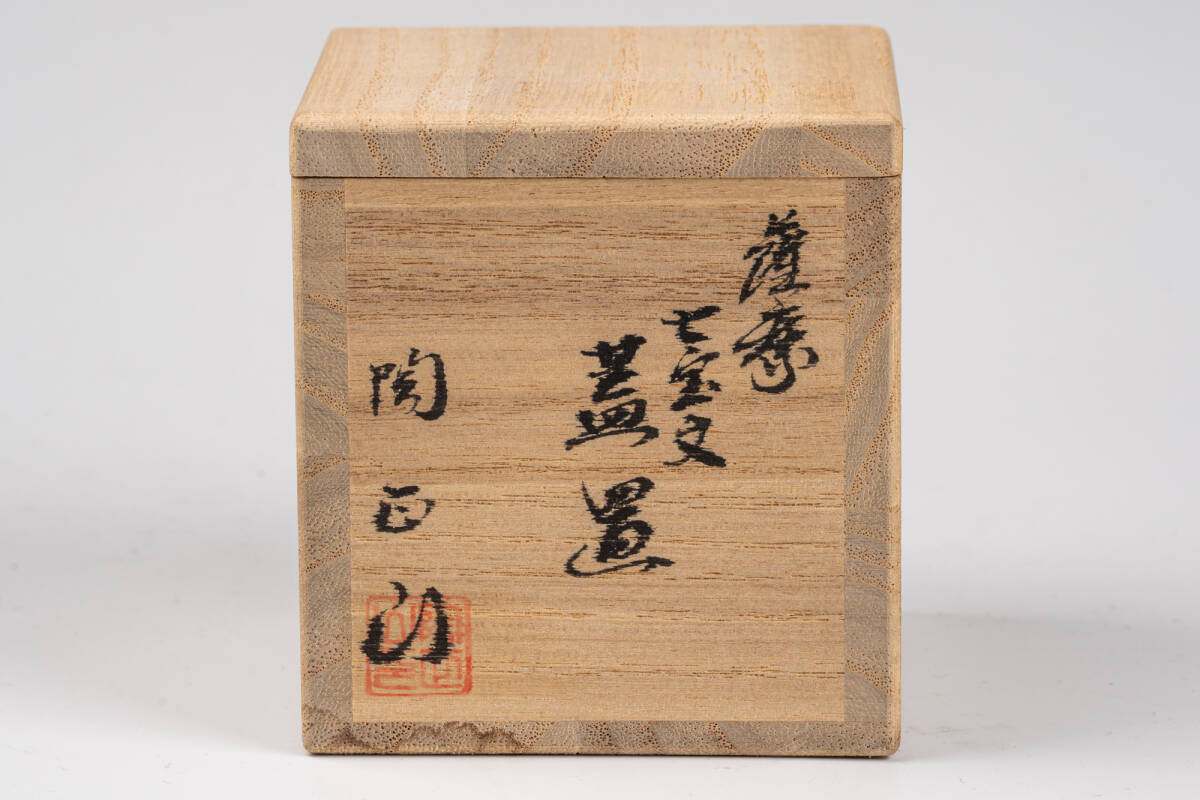 薩摩
七宝文
蓋置
陶正